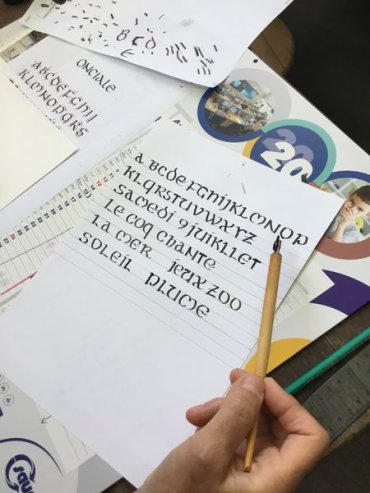 B C D
E
ONCIALE
ABCDEFGHIJ
KLMNOPQRS
A BCDEFGHIJKLMNOP
KLQRSTUVWXYZ
SAMEDI 9
LE COQ CHANTE
LA MER JEUX ZOO
SOLEIL PLUME
20
20